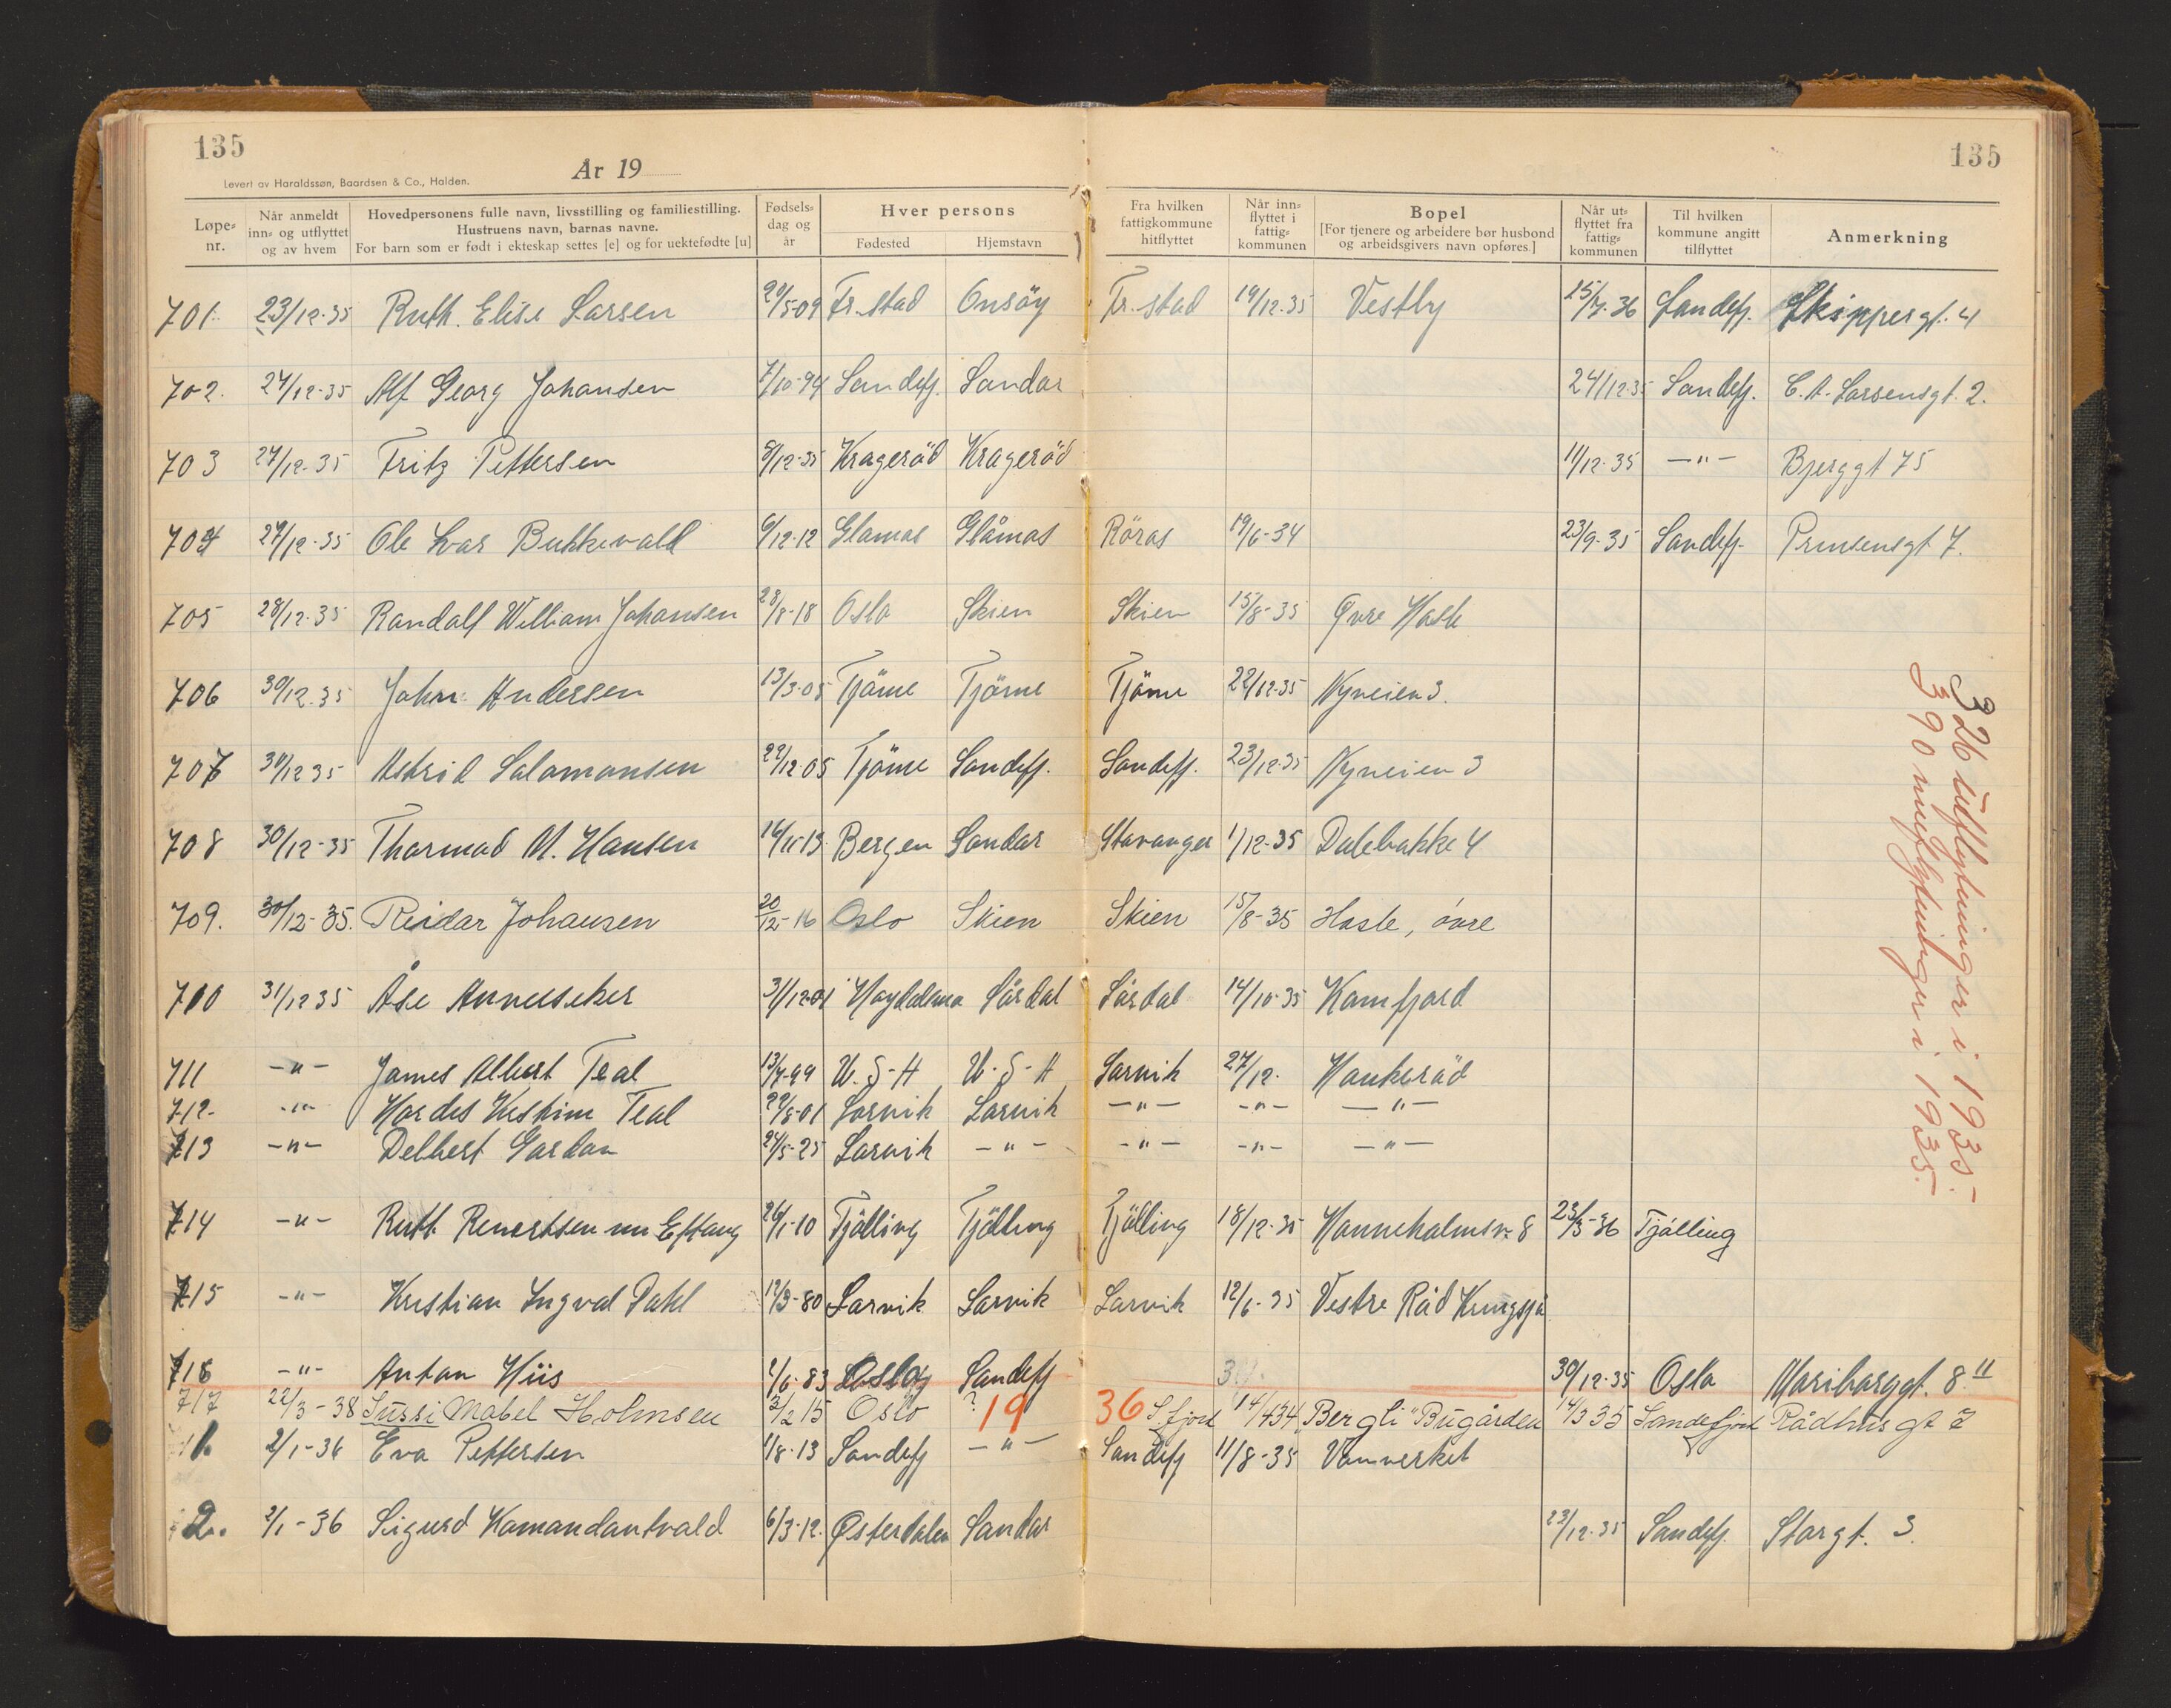 135
135
År 19
Levert av Haraldssøn, Baardsen & Co., Halden.
Løpe-nr. Når anmeldt inn- og utflyttet og av hvem Hovedpersonens fulle navn, livsstilling og familiestilling. Hustruens navn, barnas navne. For barn som er født i ekteskap settes [e] og for uektefødte [u] Fødsels-dag og år Hver persons Fødested Hjemstavn Fra hvilken fattigkommune hitflyttet Når inn-flyttet i fattig-kommunen Bopel [For tjenere og arbeidere bør husbond og arbeidsgivers navn opføres.] Når ut-flyttet fra fattig-kommunen Til hvilken kommune angitt tilflyttet Anmerkning
701. 23/12-35 Ruth. Elise Larsen 29/5-09 Fr.stad Onsöy Fr.stad 19/12.35 Vestby 15/7.36 Sandefj. Skippergt. 4
702. 27/12-35 Alf Georg Johansen 7/10-94 Sandefj. Sandar 24/12.35 Sandefj. C.A. Larsensgt. 2.
703 27/12-35 Fritz Pettersen 8/12-35 Krageröd Krageröd 11/12.35 —"— Bjerggt 75
704 27/12-35 Ole Ivar Bukkevald 6/12-12 Glamos Glåmos Röros 19/6-34 23/9-35 Sandefj. Prinsensgt 7.
705 28/12-35 Randolf William Johansen 28/8-18 Oslo Skien Skien 15/8-35 Øvre Hasle
706 30/12.35 John Andersen 13/3-05 Tjöme Tjöme Tjöme 22/12-35 Nyveien 3.
707 30/12 35 Astrid Salomonsen 22/12-05 Tjöme Sandefj. Sandefj. 23/12-35 Nyveien 3
708 30/12-35 Thormod M. Hansen 16/11-13 Bergen Sandar Stavanger 1/12-35 Dalebakke 4
709. 30/12-35. Reidar Johansen 20/12-16 Oslo Skien Skien 15/8-35 Hasle, övre
710 31/12 35 Åse 31/12-01 Sördal Sördal 14/10-35 Kamfjord
711 —"— James Albert Teal 13/7-99 U.S-A U.S-A Larvik 27/12. Haukeröd
712- —"— Hordis Kristine Teal 22/8-01 Larvik Larvik —"— —"— —"—
713 —"— Delbert Gordon 24/5-25 Larvik —"— —"— —"— —"—
714 —"— Ruth Renertsen nu Eftang 26/1-10 Tjölling Tjölling Tjölling 18/12-35 Hanneholmsv. 8 23/3-36 Tjölling
715 —"— Kristian Ingval Dahl 12/3-80 Larvik Larvik Larvik 12/6-35 Vestre Råd
716 —"— Anton Hiis 2/6-83 Oslo Sandefj 30/12-35 Oslo Mariborggt. 8 II
717 22/3-38 Sussi Mabel Holmsen 3/2 15 Oslo ? S.fjord 14/4 34 "Bergli" Bugården 14/3 35 Sandefjord Rådhus gt 7
19 36
1. 2/1-36 Eva Pettersen 1/8-13 Sandefj —"— Sandefj 11/8-35 Vannverket
2. 2/1-36 Sigurd Komandantvold 6/3-12. Østerdalen Sandar 23/12.35 Sandefj. Storgt. 3.
326 utflytninger i 1935.-
390 innflytninger i 1935.-